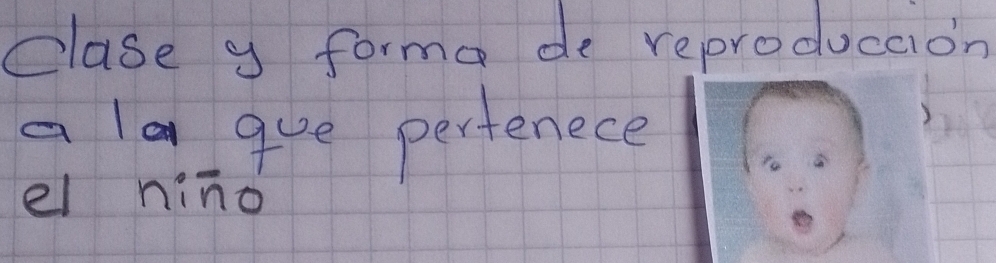 Clase y forma de reproducción
a la que pertenece
el niño